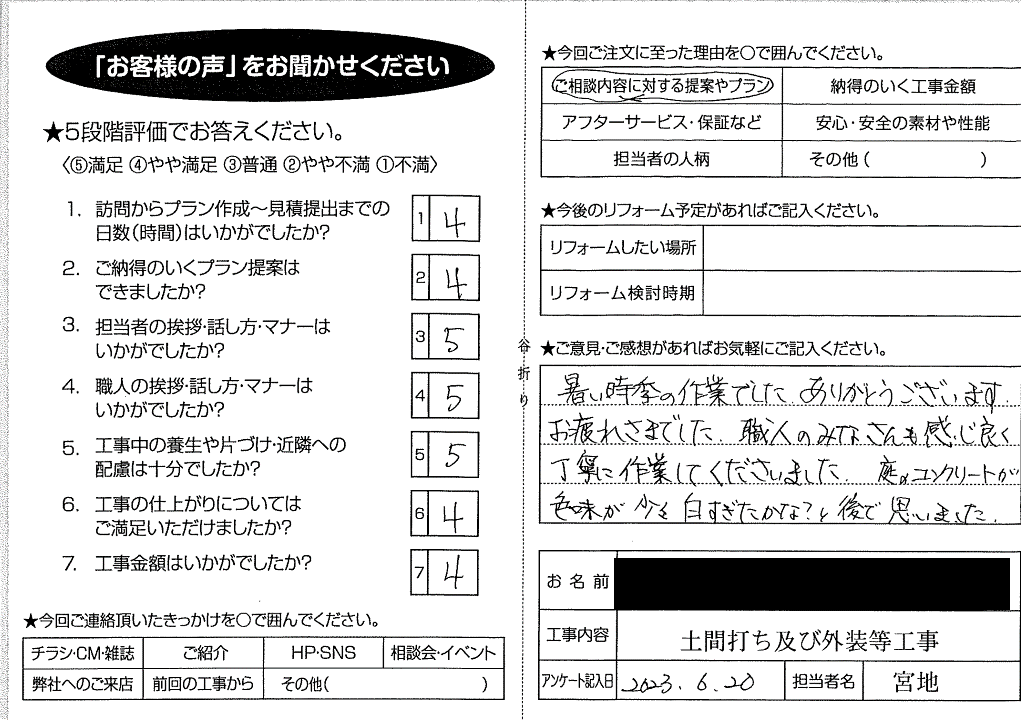 「お客様の声」をお聞かせください
★5段階評価でお答えください。
〈⑤満足 ④やや満足 ③普通 ②やや不満 ①不満〉
1. 訪問からプラン作成～見積提出までの
日数(時間)はいかがでしたか?
1 4
2. ご納得のいくプラン提案は
できましたか?
2 4
3. 担当者の挨拶・話し方・マナーは
いかがでしたか?
3 5
4. 職人の挨拶・話し方・マナーは
いかがでしたか?
4 5
5. 工事中の養生や片づけ・近隣への
配慮は十分でしたか?
5 5
6. 工事の仕上がりについては
ご満足いただけましたか?
6 4
7. 工事金額はいかがでしたか?
7 4
★今回ご連絡頂いたきっかけを○で囲んでください。
チラシ・CM・雑誌 ご紹介 HP・SNS 相談会・イベント
弊社へのご来店 前回の工事から その他( )
谷折り
★今回ご注文に至った理由を○で囲んでください。
ご相談内容に対する提案やプラン 納得のいく工事金額
アフターサービス・保証など 安心・安全の素材や性能
担当者の人柄 その他( )
★今後のリフォーム予定があればご記入ください。
リフォームしたい場所
リフォーム検討時期
★ご意見・ご感想があればお気軽にご記入ください。
暑い時季の作業でした ありがとうございます
お疲れさまでした. 職人のみなさんも感じ良く
丁寧に作業してくださいました. 庭のコンクリートが
色味が 少々 白すぎたかな?と後で思いました.
お名前
工事内容 土間打ち及び外装等工事
アンケート記入日 2023.6.20 担当者名 宮地